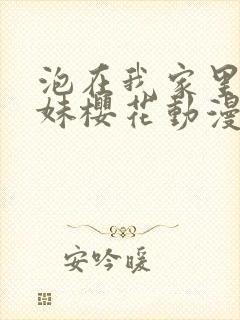 泡在我家里
妹樱花動漫
安吟暖